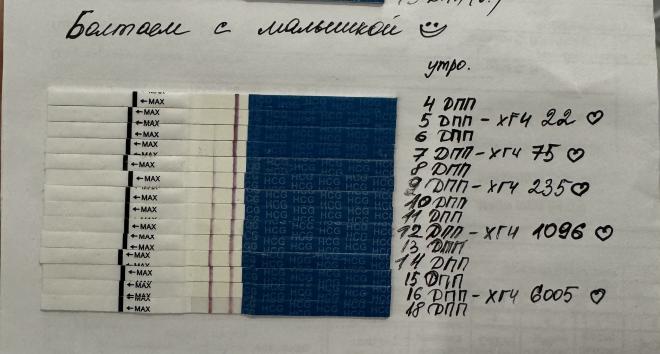 Болтаем с малышкой
утро.
4 ДПП
5 ДПП - ХГЧ 22 ♡
6 ДПП
7 ДПП - ХГЧ 75 ♡
8 ДПП
9 ДПП - ХГЧ 235 ♡
10 ДПП
11 ДПП
12 ДПП - ХГЧ 1096 ♡
13 ДПП
14 ДПП
15 ДПП
16 ДПП - ХГЧ 6005 ♡
18 ДПП
←MAX
←MAX
←MAX
←MAX
←MAX
←MAX
←MAX
←MAX
←MAX
←MAX
←MAX
←MAX
←MAX
←MAX
HCG HCG HCG HCG